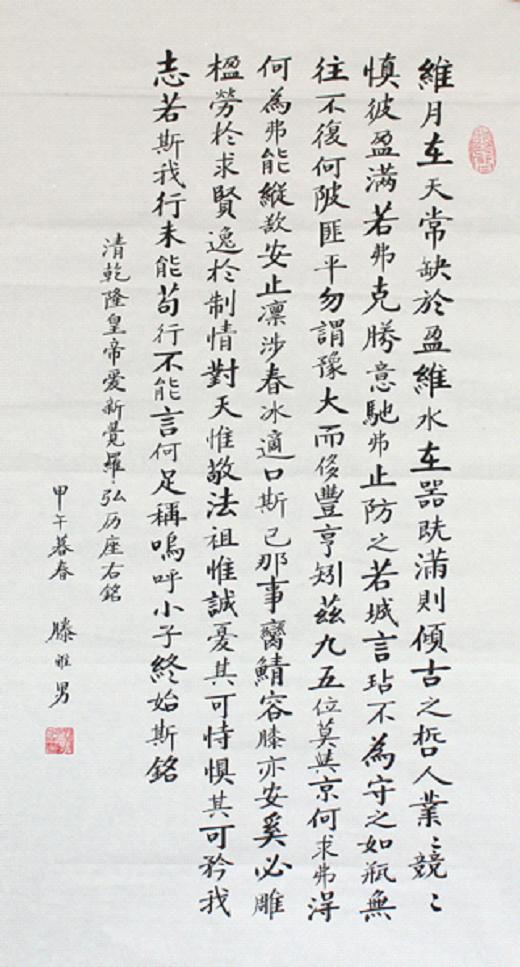 維月在天常缺於盈維水在器既滿則傾古之哲人業〻競〻
慎彼盈滿若弗克勝意馳弗止防之若城言玷不為守之如瓶無
往不復何陂匪平勿謂豫大而侈豐亨矧茲九五位莫與京何求弗得
何為弗能縱欲安止凛涉春冰適口斯已那事鸞鯖容膝亦安奚必雕
楹勞於求賢逸於制情對天惟敬法祖惟誠憂其可恃惧其可矜我
志若斯我行未能苟行不能言何足稱嗚呼小子終始斯銘
清乾隆皇帝愛新覺羅·弘历座右銘
甲午暮春 滕雅男